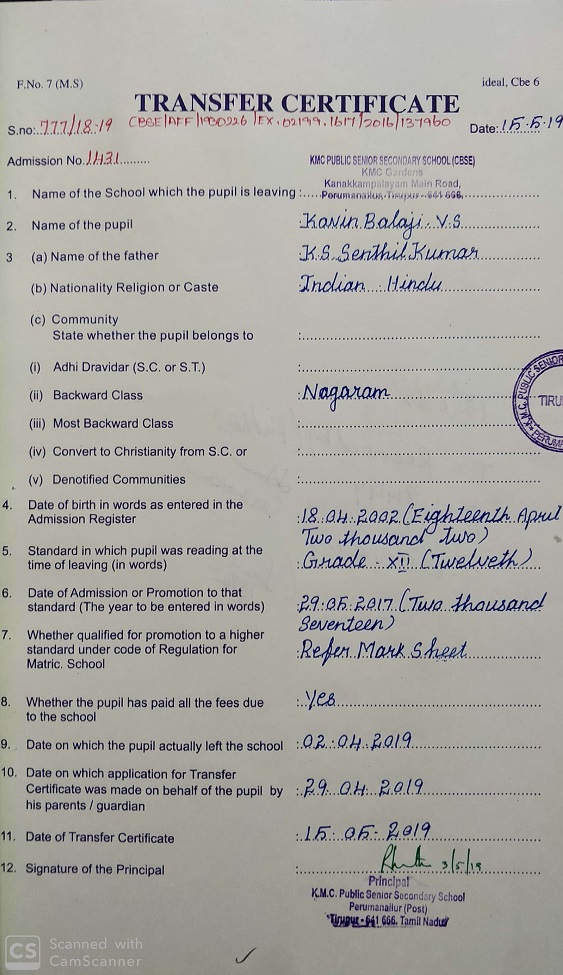 F.No. 7 (M.S)
ideal, Cbe 6
TRANSFER CERTIFICATE
S.no: 777/18-19 CBSE/AFF/1930226/EX.02199.1617/2016/137960 Date: 15.5.19
Admission No. 1431
KMC PUBLIC SENIOR SECONDARY SCHOOL (CBSE)
KMC Gardens
Kanakkampalayam Main Road,
1. Name of the School which the pupil is leaving : Perumanallur, Tirupur - 641 666.
2. Name of the pupil : Kavin Balaji. V.S
3 (a) Name of the father : K.S. Senthil Kumar
(b) Nationality Religion or Caste Indian Hindu
(c) Community
State whether the pupil belongs to :
(i) Adhi Dravidar (S.C. or S.T.) :
(ii) Backward Class : Nagaram
(iii) Most Backward Class :
(iv) Convert to Christianity from S.C. or :
(v) Denotified Communities :
4. Date of birth in words as entered in the
Admission Register : 18.04.2002 (Eighteenth April
Two thousand two)
5. Standard in which pupil was reading at the
time of leaving (in words) : Grade - XII (Twelveth)
6. Date of Admission or Promotion to that
standard (The year to be entered in words) : 29.05.2017 (Two thousand
Seventeen)
7. Whether qualified for promotion to a higher
standard under code of Regulation for : Refer Mark Sheet
Matric. School
8. Whether the pupil has paid all the fees due : Yes
to the school
9. Date on which the pupil actually left the school : 02.04.2019
10. Date on which application for Transfer
Certificate was made on behalf of the pupil by : 29.04.2019
his parents / guardian
11. Date of Transfer Certificate : 15-05-2019
12. Signature of the Principal : 3/5/19
Principal
K.M.C. Public Senior Secondary School
Perumanallur (Post)
Tirupur - 641 666. Tamil Nadu
K.M.C. PUBLIC SENIOR
TIRU
PERUMA
CS Scanned with
CamScanner